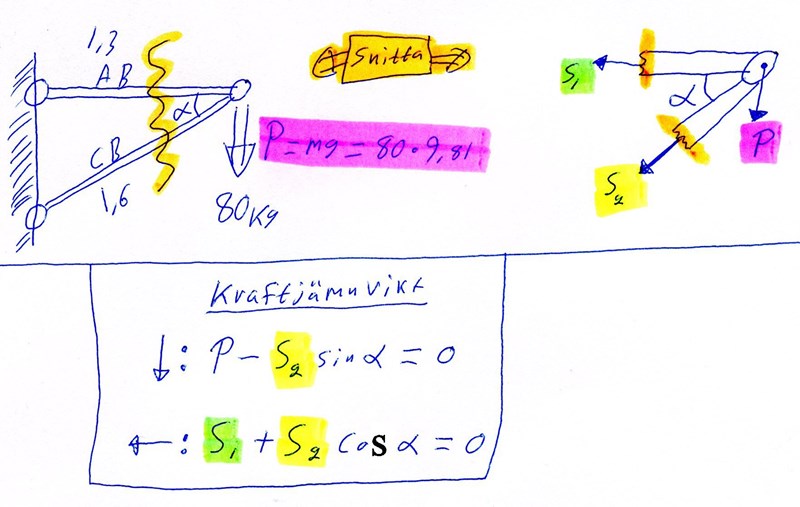 1,3
AB
α
CB
1,6
80Kg
Snitta
P = mg = 80 · 9,81
S₁
α
S₂
P
Kraftjämnvikt
↓: P − S₂ sin α = 0
←: S₁ + S₂ cos α = 0